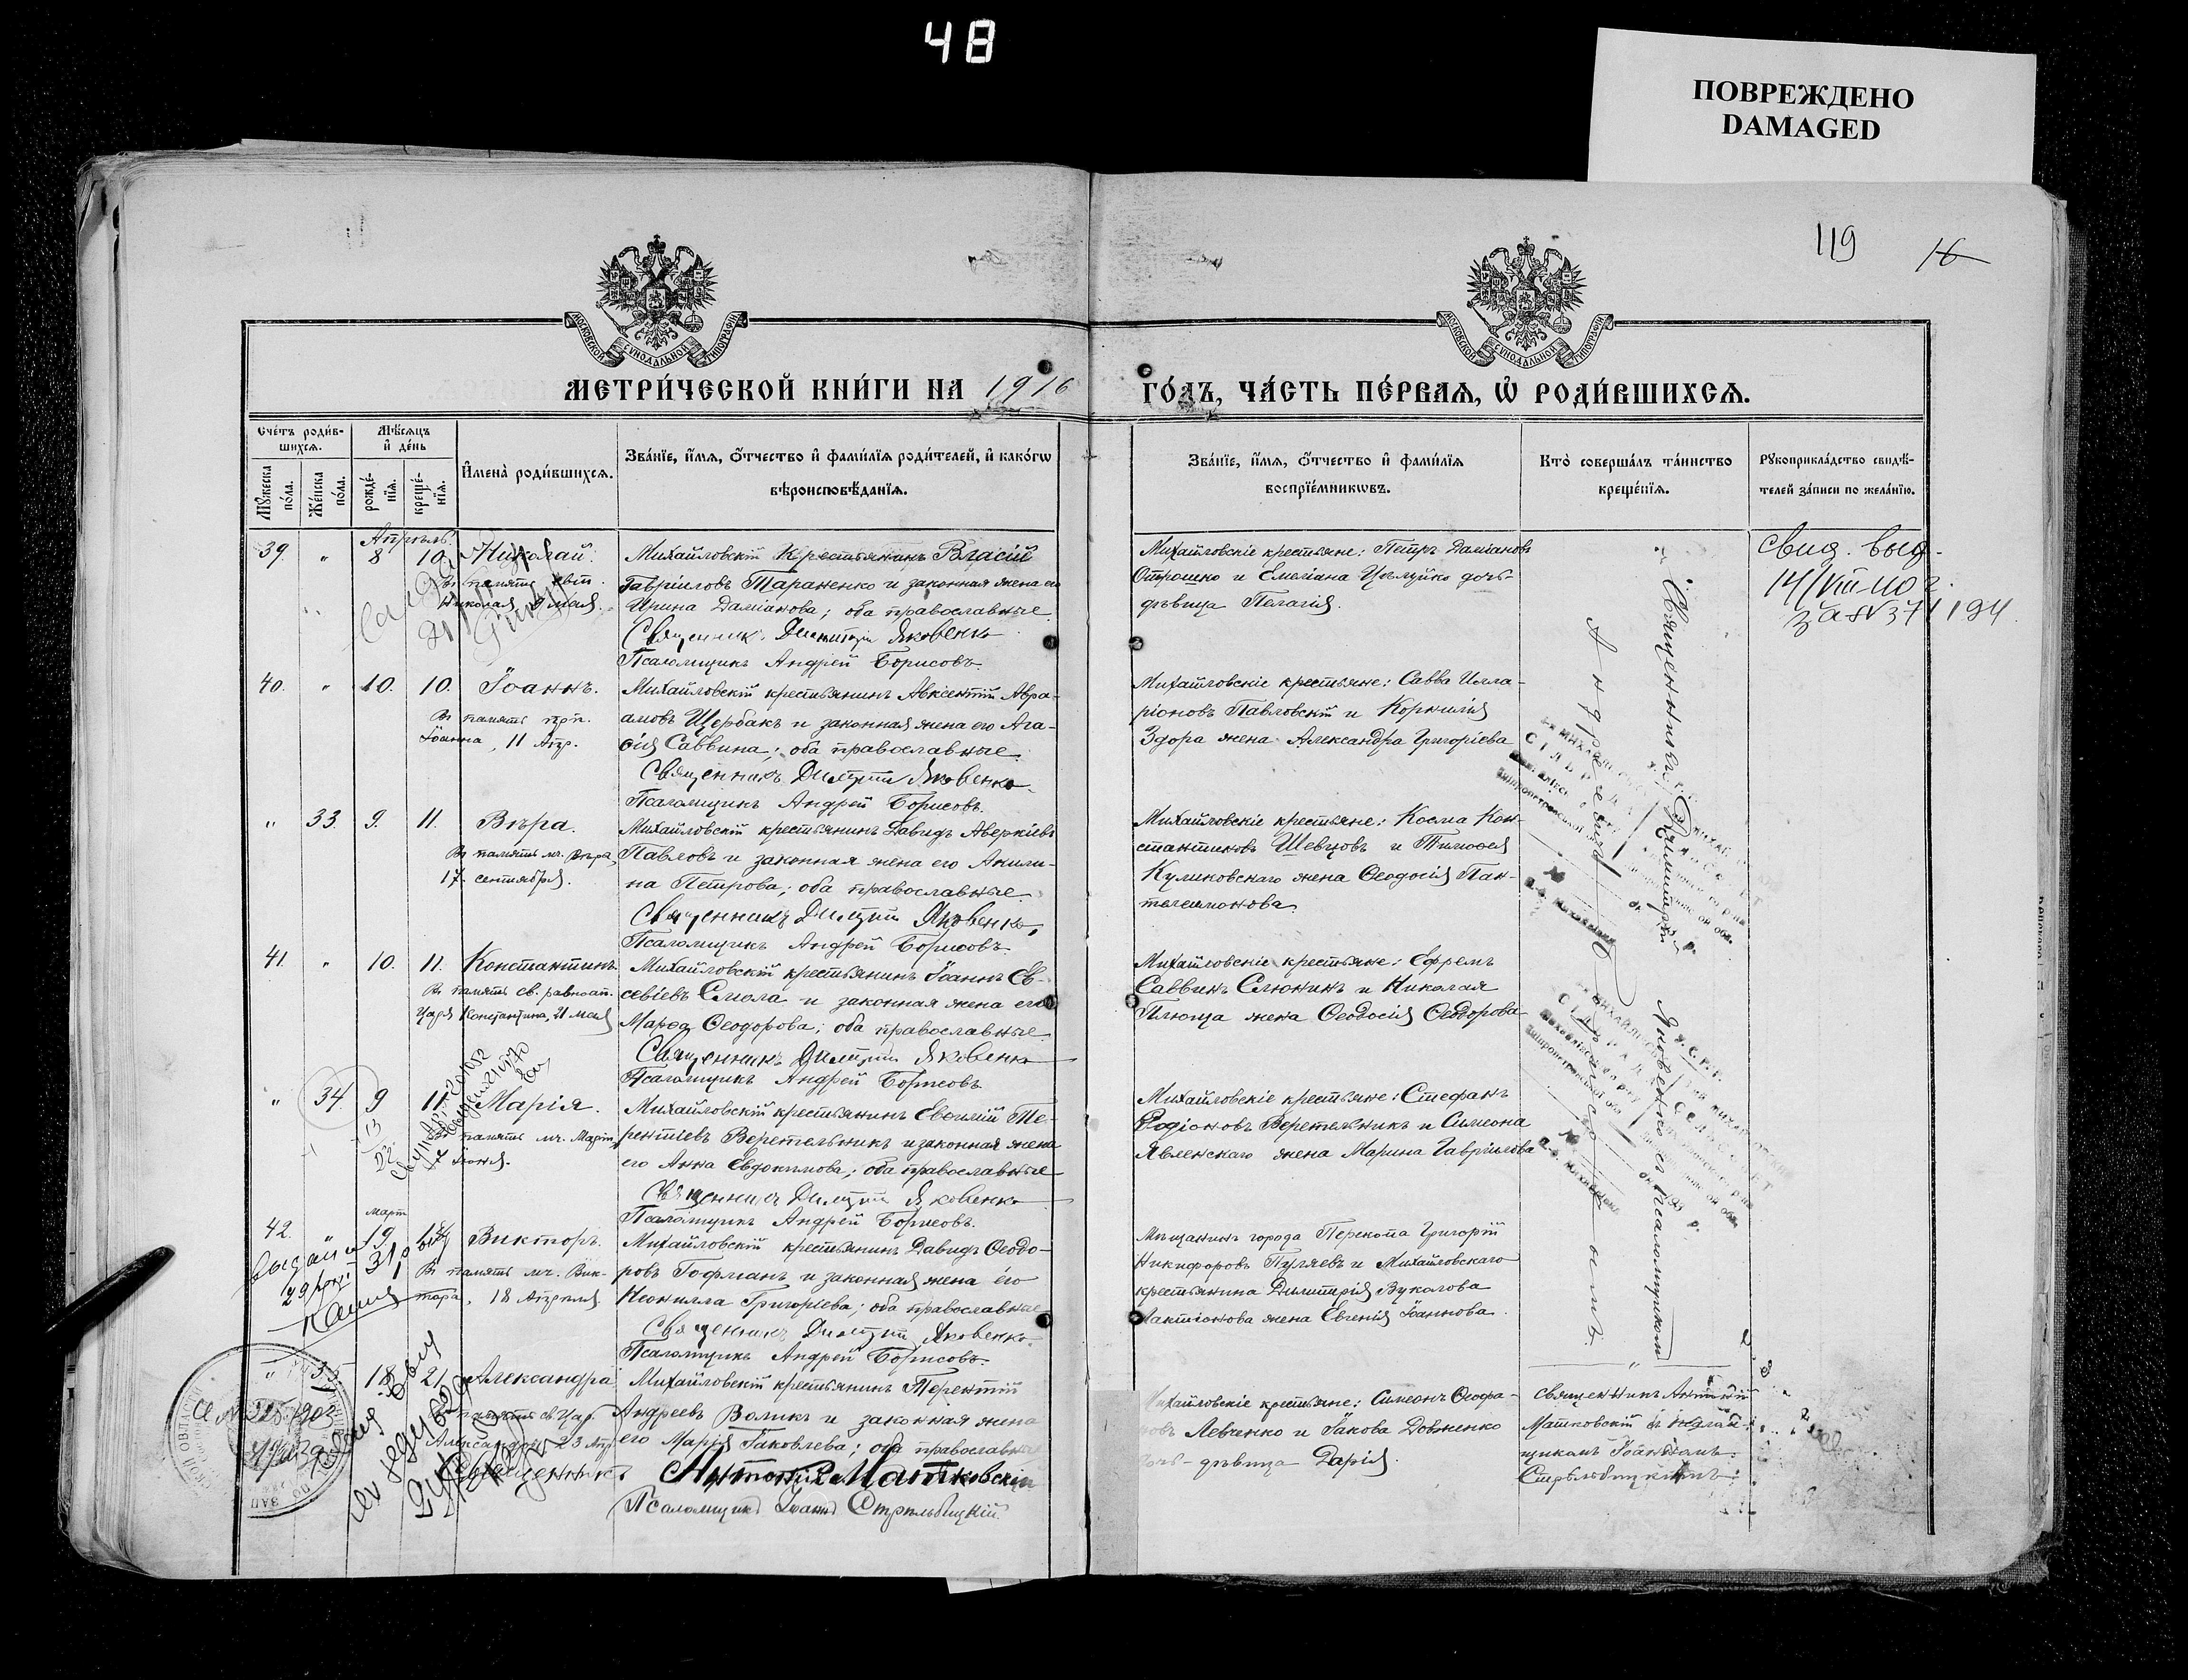 48
ПОВРЕЖДЕНО
DAMAGED
119 16
МОСКОВСКОЙ СУНОДАЛЬНОЙ ТИПОГРАФІИ
МОСКОВСКОЙ СУНОДАЛЬНОЙ ТИПОГРАФІИ
МЕТРИ́ЧЕСКОЙ КНИ́ГИ НА 1916 ГО́ДЪ, ЧА́СТЬ ПЕ́РВАЯ, Ѿ РОДИ́ВШИХСЯ.
Сче́тъ роди́вшихся.
Му́жеска по́ла.
Же́нска по́ла.
Мѣ́сяцъ и де́нь
рожде́нїя.
креще́нїя.
Имена̀ роди́вшихся.
Зва́нїе, и́мя, о́тчество и фами́лїя роди́телей, и како́гѡ
вѣроисповѣ́данїя.
Зва́нїе, и́мя, о́тчество и фами́лїя
воспрїе́мникѡвъ.
Кто̀ соверша́лъ та́инство
креще́нїя.
Рꙋкоприкла́дство свидѣ́телей за́писи по жела́нїю.
Апрѣль.
39. " 8 10. Николай.
въ память свт.
Николая 9 мая.
Михайловскій Крестьянинъ Власій
Гавріиловъ Тараненко и законная жена его
Ирина Даміанова; оба православные.
Священникъ Димитрій Яковенко
Псаломщикъ Андрей Борисовъ
Михайловскіе крестьяне: Петръ Даміановъ
Отрошко и Емеліана Цѣлуйко дочь-
дѣвица Пелагія.
Свид. выд.
14/VIII-40 г.
за № 371194
40. " 10. 10. Іоаннъ.
Въ память прп.
Іоанна, 11 Апр.
Михайловскій крестьянинъ Авксентій Авра-
амовъ Щербакъ и законная жена его Ага-
ѳія Саввина; оба православные.
Священникъ Димитрій Яковенко
Псаломщикъ Андрей Борисовъ.
Михайловскіе крестьяне: Савва Илла-
ріоновъ Павловскій и Корнилія
Здора жена Александра Григоріева
" 33. 9. 11. Вѣра.
Въ память мч. Вѣры,
17 сентября.
Михайловскій крестьянинъ Давидъ Аверкіевъ
Павловъ и законная жена его Акили-
на Петрова; оба православные.
Священникъ Димитрій Яковенко,
Псаломщикъ Андрей Борисовъ
Михайловскіе крестьяне: Косма Кон-
стантиновъ Шевцовъ и Тимоѳея
Куликовскаго жена Ѳеодосія Пан-
телеимонова.
41. " 10. 11. Константинъ
Въ память св. равноап.
Царя Константина, 21 мая
Михайловскій крестьянинъ Іоаннъ Ев-
севіевъ Смола и законная жена его
Марѳа Ѳеодорова; оба православные.
Священникъ Димитрій Яковенко
Псаломщикъ Андрей Борисовъ
Михайловскіе крестьяне: Ефремъ
Саввинъ Слюнинъ и Николая
Плюща жена Ѳеодосія Ѳеодорова
" 34. 9 11 Марія.
память мч. Маріи,
Іюня.
Михайловскій крестьянинъ Евѳимій Те-
рентіевъ Веретельникъ и законная жена
его Анна Евдокимова; оба православные
Священникъ Димитрій Яковенко
Псаломщикъ Андрей Борисовъ.
Михайловскіе крестьяне: Стефанъ
Родіоновъ Веретельникъ и Симеона
Явленскаго жена Марина Гавріилова
Март
42. " 19 Викторъ.
31
Въ память мч. Вик-
тора, 18 Апрѣля.
Михайловскій крестьянинъ Давидъ Ѳеодо-
ровъ Гофманъ и законная жена его
Неонилла Григоріева; оба православные
Священникъ Димитрій Яковенко
Псаломщикъ Андрей Борисовъ.
Мѣщанинъ города Перекопа Григорій
Никифоровъ Пуляевъ и Михайловскаго
крестьянина Димитрія Вуколова
Лактіонова жена Евгенія Іоаннова.
Священникъ Димитрій Яковенко съ псаломщикомъ
Андреемъ Борисовымъ.
" 35 18 21 Александра
память св. Цар.
Александры 23 Апр.
Михайловскій крестьянинъ Терентій
Андреевъ Воликъ и законная жена
его Марія Іаковлева; оба православные
Священникъ Антоній Матковскій
Псаломщикъ Іоаннъ Стрѣльбицкій.
Михайловскіе крестьяне: Симеонъ Ѳеофа-
новъ Левченко и Іакова Довженко
дочь-дѣвица Дарія.
Священникъ Антоній
Матковскій съ псалом-
щикомъ Іоанномъ
Стрѣльбицкимъ.